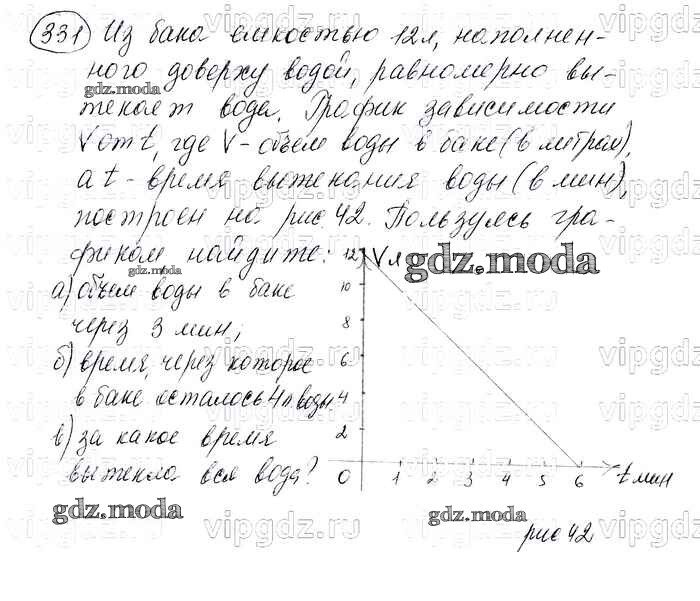 331 Из бака емкостью 12л, наполнен-
ного доверху водой, равномерно вы-
текает вода. График зависимости
V от t, где V - объем воды в баке (в литрах),
а t - время вытекания воды (в мин),
построен на рис. 42. Пользуясь гра-
фиком найдите:
а) объем воды в баке
через 3 мин;
б) время, через которое
в баке осталось 4л воды.
в) за какое время
вытекла вся вода?
12 V л
10
8
6
4
2
0 1 2 3 4 5 6 t мин
рис 42
gdz.moda
gdz.moda
gdz.moda
gdz.moda
gdz.moda
vipgdz.ru